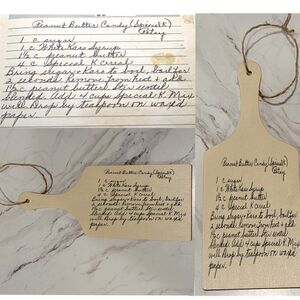 Peanut Butter Candy (Special K)
Patsy
1 c sugar
1 c White Karo Syrup
1½ c peanut butter
4 c Special K Cereal
Bring sugar + Karo to boil, boil for
a seconds. Remove from heat + add
1½ c peanut butter. Stir until
blended. Add 4 cups Special K. Mix
well. Drop by teaspoon on waxed
paper.
Peanut Butter Candy (Special K)
Patsy
1 c sugar
1 c White Karo Syrup
1½ c peanut butter
4 c Special K Cereal
Bring sugar + Karo to boil, boil for
a seconds. Remove from heat + add
1½ c peanut butter. Stir until
blended. Add 4 cups Special K. Mix
well. Drop by teaspoon on waxed
paper.
Peanut Butter Candy (Special K)
Patsy
1 c sugar
1 c White Karo Syrup
1½ c peanut butter
4 c Special K Cereal
Bring sugar + Karo to boil, boil for
a seconds. Remove from heat + add
1½ c peanut butter. Stir until
blended. Add 4 cups Special K. Mix
well. Drop by teaspoon on waxed
paper.